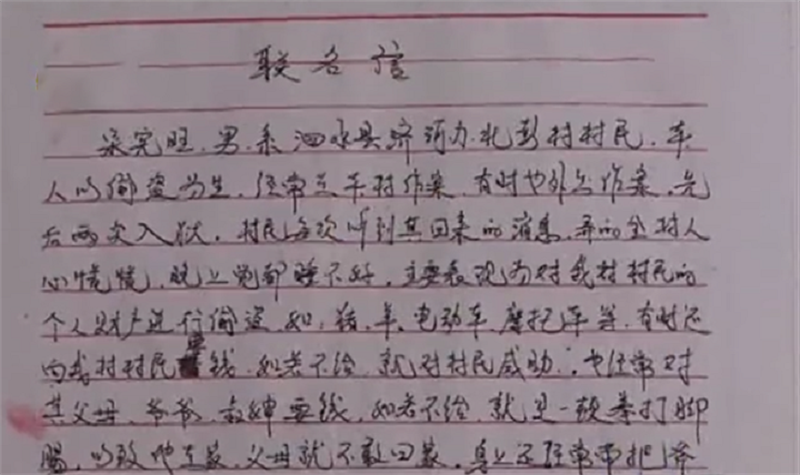 联名信
宗完旺,男,系泗水县济河办北彭村村民,本
人以偷盗为生,经常在本村作案,有时也外出作案,先
后两次入狱,村民每次听到其回来的消息,弄的全村人
心慌慌,晚上觉都睡不好,主要表现为对我村村民的
个人财产进行偷盗,如:猪、羊、电动车、摩托车等,有时还
向我村村民要钱,如若不给,就对村民威胁,也经常对
其父母、爷爷、叔婶要钱,如若不给,就是一顿拳打脚
踢,以致他在家,父母就不敢回家,身上还经常带把